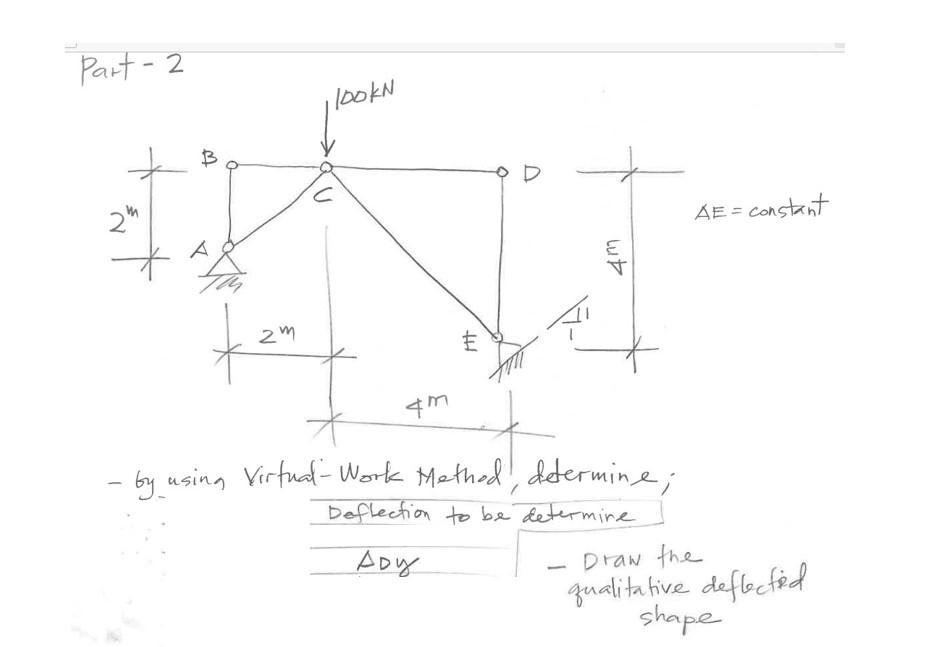 Part - 2
100kN
B
D
C
2m
A
AE = constant
4m
1
1
2m
E
4m
- by using Virtual-Work Method, determine;
Deflection to be determine
ΔDy
- Draw the
qualitative deflected
shape